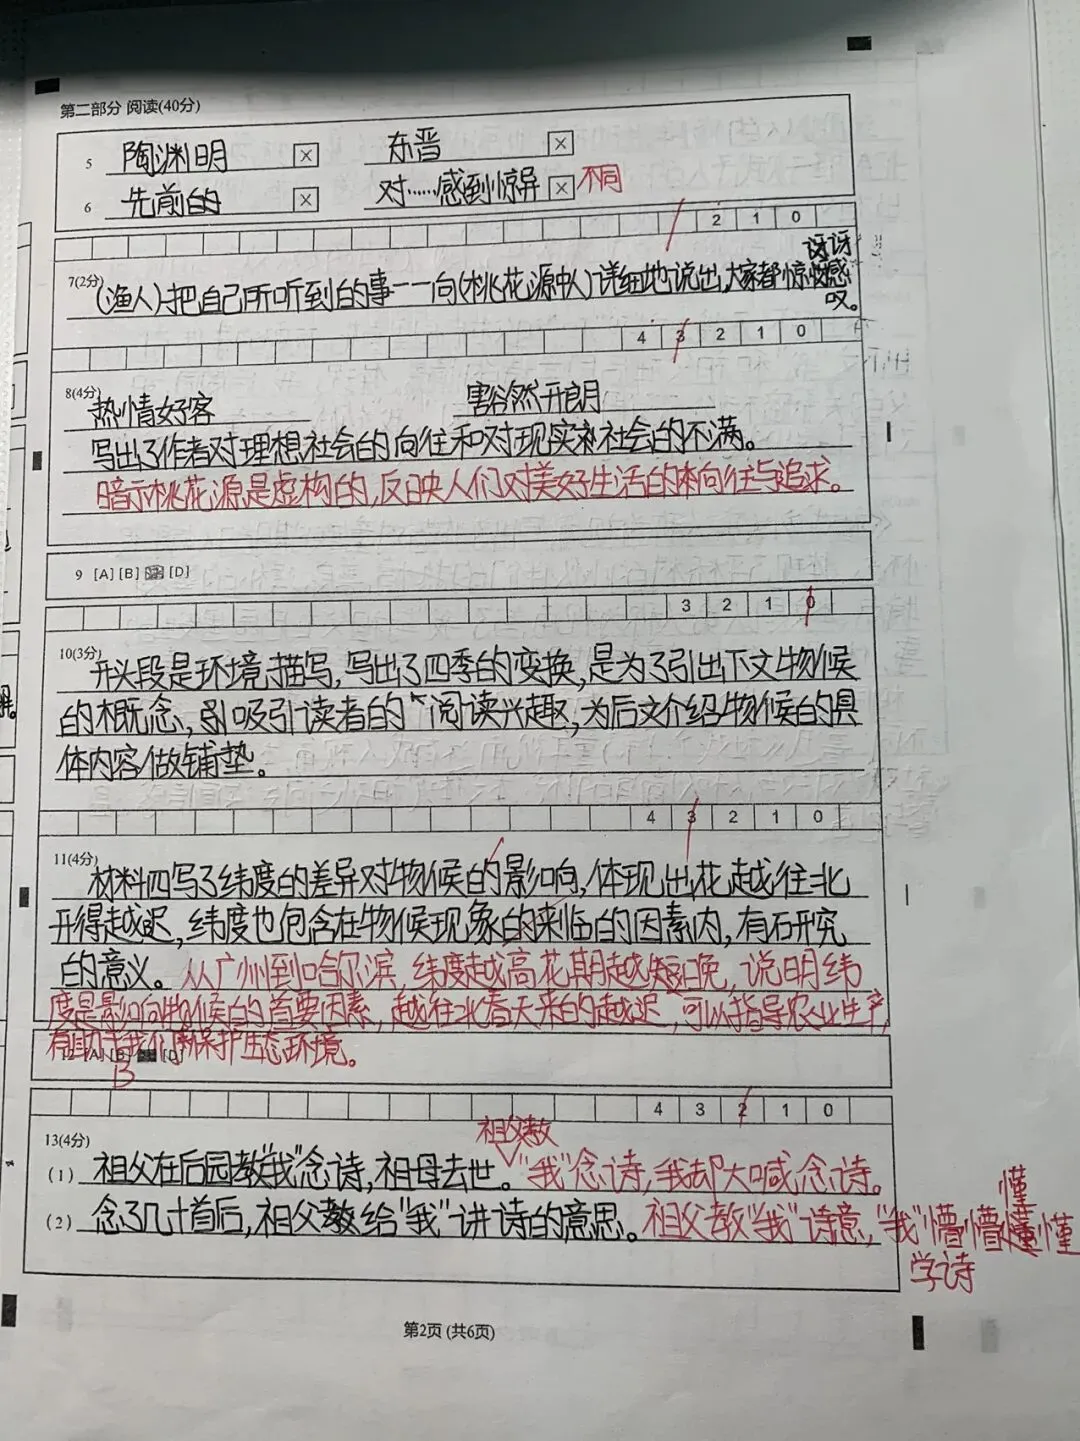 第二部分 阅读(40分)
5 陶渊明 × 东晋 ×
6 先前的 × 对……感到惊异 × 不同
2 1 0
7(2分) (渔人)把自己所听到的事一一向(桃花源中人)详细地说出,大家都惊讶感叹。
4 3 2 1 0
8(4分)
热情好客 豁然开朗
写出了作者对理想社会的向往和对现实社会的不满。
暗示桃花源是虚构的,反映人们对美好生活的向往与追求。
9 [A] [B] [D]
3 2 1 0
10(3分) 开头段是环境描写,写出了四季的变换,是为了引出下文物候
的概念,吸引读者的阅读兴趣,为后文介绍物候的具
体内容做铺垫。
4 3 2 1 0
11(4分)
材料四写了纬度的差异对物候的影响,体现出花越往北
开得越迟,纬度也包含在物候现象的来临的因素内,有研究
的意义。从广州到哈尔滨,纬度越高花期越晚,说明纬
度是影响物候的首要因素,越往北春天来的越迟,可以指导农业生产,
有助于我们保护生态环境。
12 [A] [B] [D]
B
4 3 2 1 0
13(4分)
祖父教
(1) 祖父在后园教"我"念诗,祖母去世。"我"念诗,我却大喊念诗。
(2) 念了几十首后,祖父教给"我"讲诗的意思。祖父教"我"诗意,"我"懵懵懂懂
学诗
第2页 (共6页)